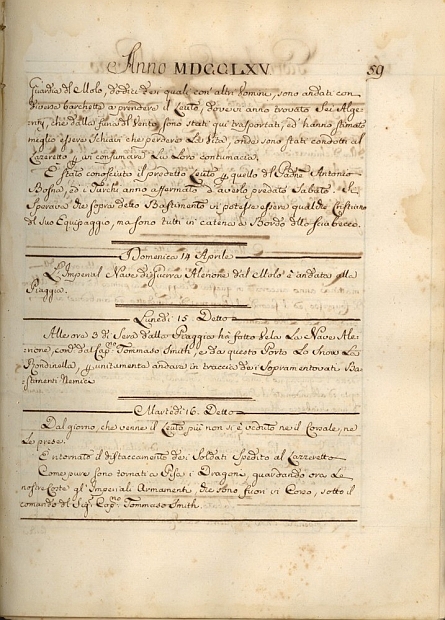 Anno MDCCLXV. 59
Guardia del Molo, dodici de i quali con altri Uomini, sono andati con
diverse barchette a prendere il Leuto, dove vi anno trovato Sei Alge
rini, che dalla furia del Vento, sono stati qui trasportati, ed hanno stimato
meglio essere Schiavi che perdere La Vita, onde sono stati condotti al
Lazeretto p. ivi consumare La Loro contumacia.
E stato conosciuto il predetto Leuto p. quello del Padne Antonio
Bosna, ed i Turchi anno affermato d'averlo predato Sabato. Si
Sperava che sopra detto Bastimento vi potesse essere qualche Cristiano
del suo Equipaggio, ma sono tutti in catena a Bordo dello sciabecco.
Domenica 14 Aprile
L'Imperial Nave da Guerra Alerione dal Molo è andata alla
Piaggia.
Lunedi 15. Detto
Alle ore 3 di Sera dalla Piaggia ha fatto Vela La Nave Ale-
:rione, com.ta dal Cap.no Tommaso Smith, e da questo Porto Lo Snow La
Rondinella, p. unitamente andare in traccia dei Sopramentovati Ba-
stimenti Nemici.
Martedi 16. Detto
Dal giorno, che venne il Leuto più non si è veduto ne il Corsale, ne
Le prese.
E ritornato il distaccamento dei Soldati Spedito al Lazzeretto
Come pure sono tornati a Pisa i Dragoni, guardando ora Le
nostre Coste gl'Imperiali Armamenti, che sono fuori in Corso, sotto il
comando del Sig.r Cap.no Tommaso Smith.